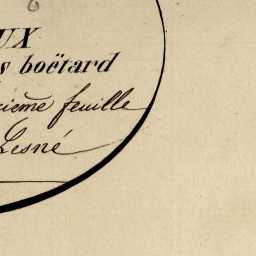 UX
s boëtard
ième feuille
Lesné